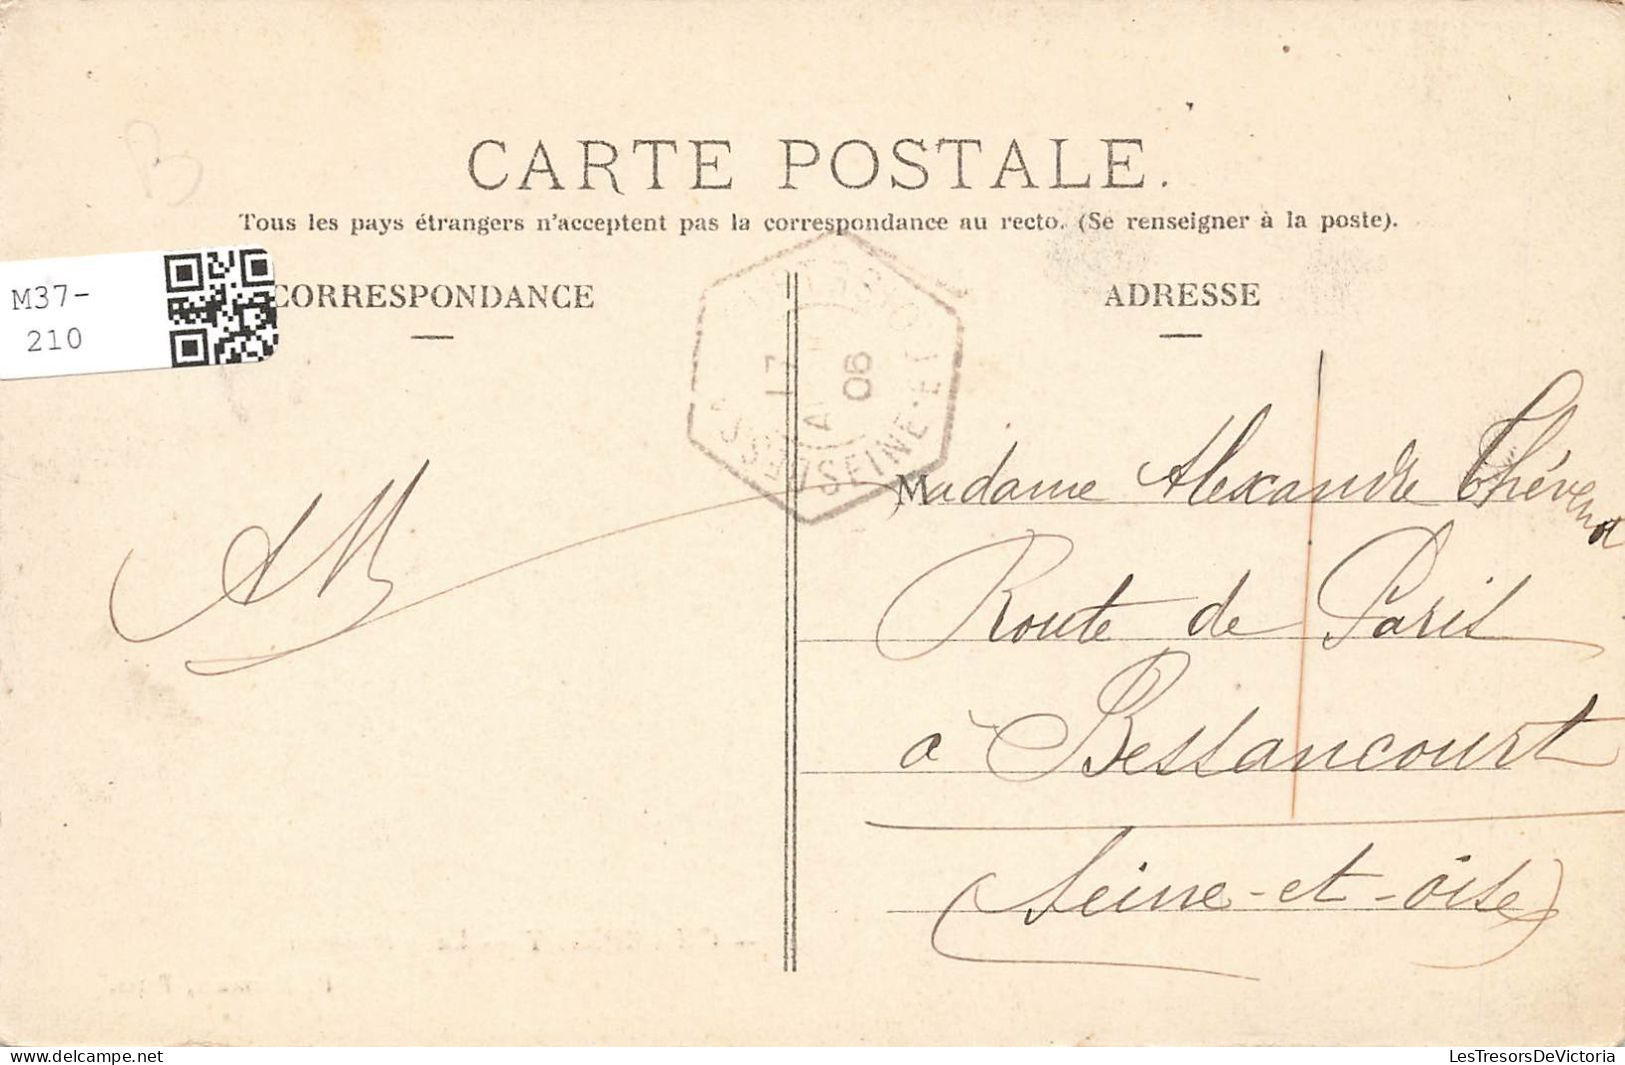 CARTE POSTALE.
Tous les pays étrangers n'acceptent pas la correspondance au recto. (Se renseigner à la poste).
M37-
210
CORRESPONDANCE
ADRESSE
17
06
SEINE-ET
AM
Madame Alexandre Thévenot
Route de Paris
à Bessancourt
(Seine-et-Oise)
www.delcampe.net
LesTresorsDeVictoria